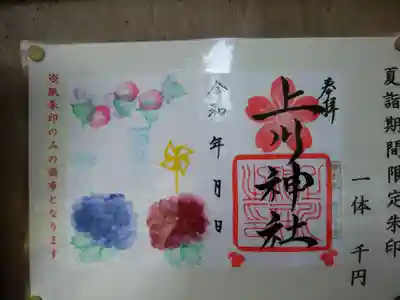 夏詣期間限定朱印
一体 千円
奉拝
上川神社
令和 年 月 日
※風朱印のみの頒布となります